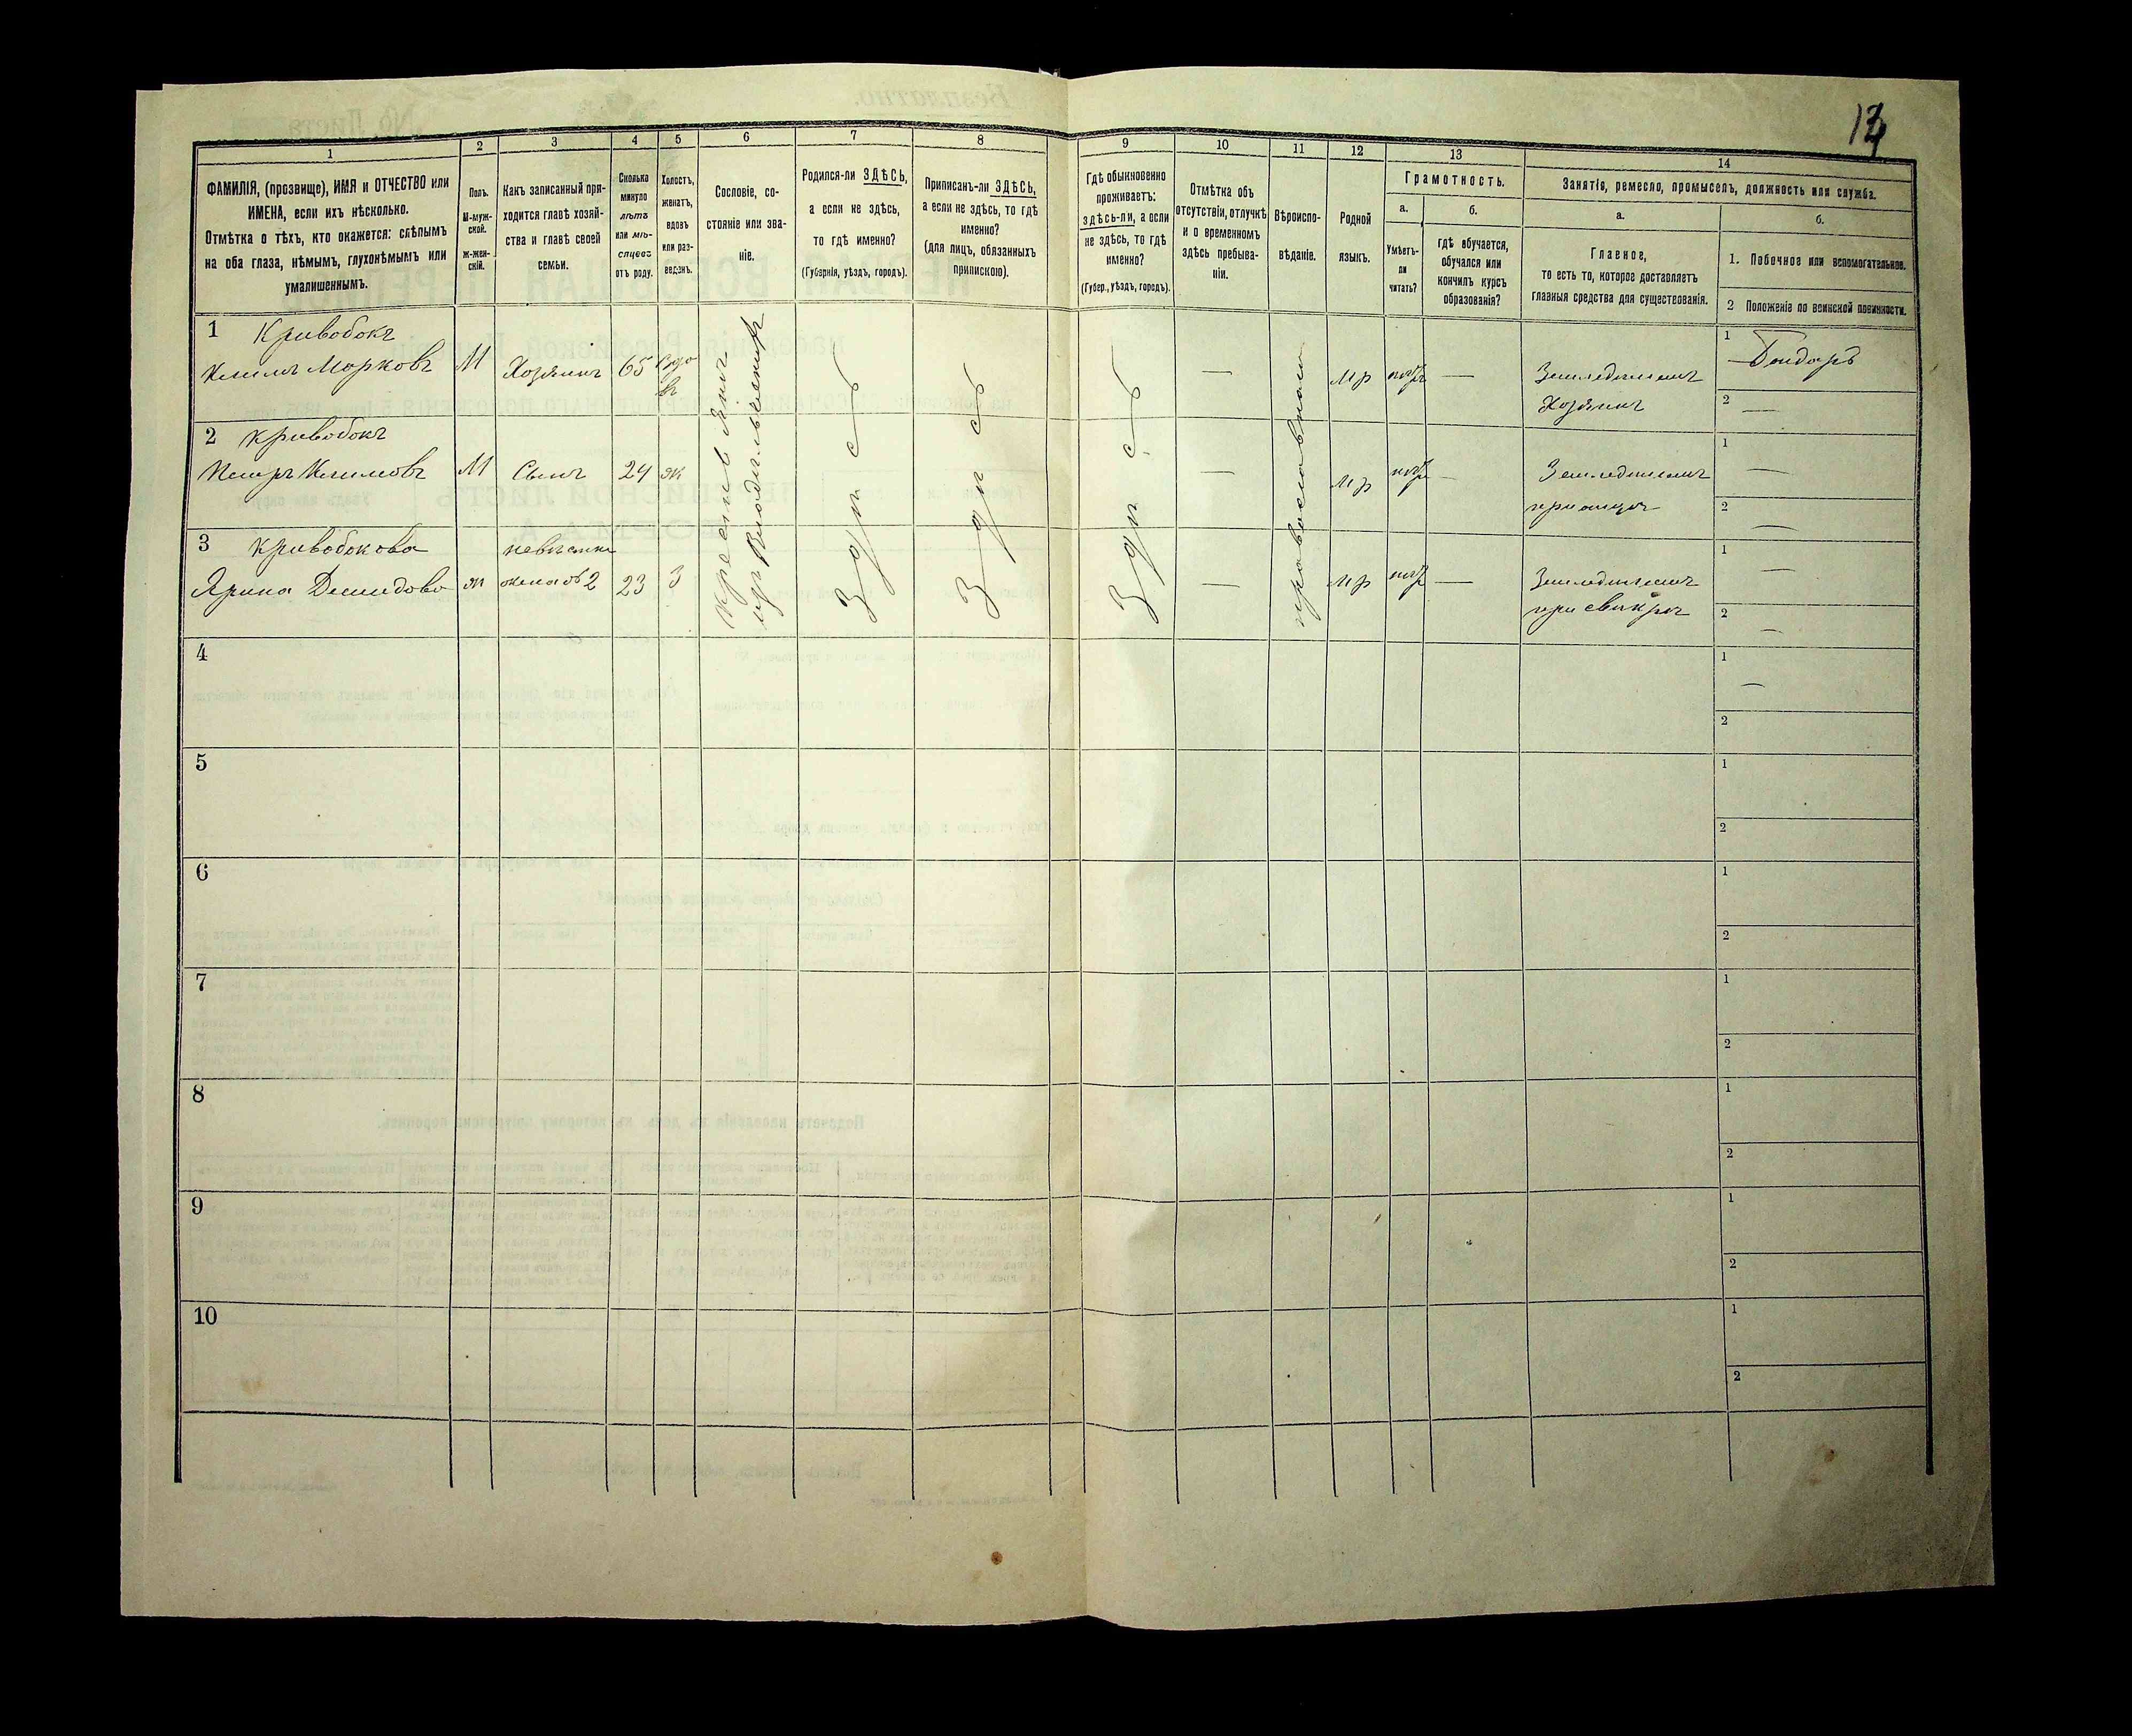 13
1
2
3
4
5
6
7
8
9
10
11
12
13
14
ФАМИЛІЯ, (прозвище), ИМЯ и ОТЧЕСТВО или
ИМЕНА, если ихъ нѣсколько.
Отмѣтка о тѣхъ, кто окажется: слѣпымъ
на оба глаза, нѣмымъ, глухонѣмымъ или
умалишеннымъ.
Полъ.
М-муж-
ской.
Ж-жен-
скій.
Какъ записанный при-
ходится главѣ хозяй-
ства и главѣ своей
семьи.
Сколько
минуло
лѣтъ
или мѣ-
сяцевъ
отъ роду.
Холостъ,
женатъ,
вдовъ
или раз-
веденъ.
Сословіе, со-
стояніе или зва-
ніе.
Родился-ли ЗДѢСЬ,
а если не здѣсь,
то гдѣ именно?
(Губернія, уѣздъ, городъ).
Приписанъ-ли ЗДѢСЬ,
а если не здѣсь, то гдѣ
именно?
(для лицъ, обязанныхъ
припискою).
Гдѣ обыкновенно
проживаетъ:
здѣсь-ли, а если
не здѣсь, то гдѣ
именно?
(Губер., уѣздъ, городъ).
Отмѣтка объ
отсутствіи, отлучкѣ
и о временномъ
здѣсь пребыва-
ніи.
Вѣроиспо-
вѣданіе.
Родной
языкъ.
Грамотность.
а.
Умѣетъ-
ли
читать?
б.
гдѣ обучается,
обучался или
кончилъ курсъ
образованія?
Занятія, ремесло, промыселъ, должность или служба.
а.
Главное,
то есть то, которое доставляетъ
главныя средства для существованія.
б.
1. Побочное или вспомогательное.
2 Положеніе по воинской повинности.
1 Кривобокъ
Марковъ М Хозяинъ 65 вдо
въ
Здѣсь
Здѣсь
Здѣсь
—
православный
Мр
—
Земледѣлецъ
Хозяинъ
1 Бондарь
2 —
2 Кривобокъ
Петръ М Сынъ 24 ж
—
Мр
—
Земледѣлецъ
при отцѣ
1 —
2 —
3 Кривобокова невѣстка
Ярина Демидова ж жена об2 23 З
—
Мр
—
Земледѣлецъ
при свекрѣ
1 —
2 —
4
1 —
2
5
1
2
6
1
2
7
1
2
8
1
2
9
1
2
10
1
2